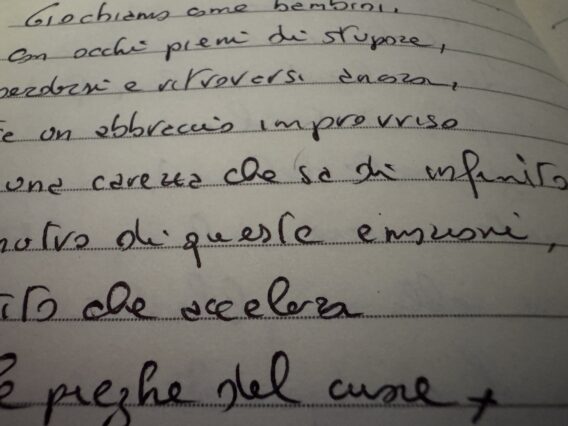 Giochiamo come bambini,
con occhi pieni di stupore,
perdersi e ritroversi ancora,
e un abbraccio improvviso
una carezza che sa di infinito
di queste emozioni,
che accelera
pieghe del cuore,